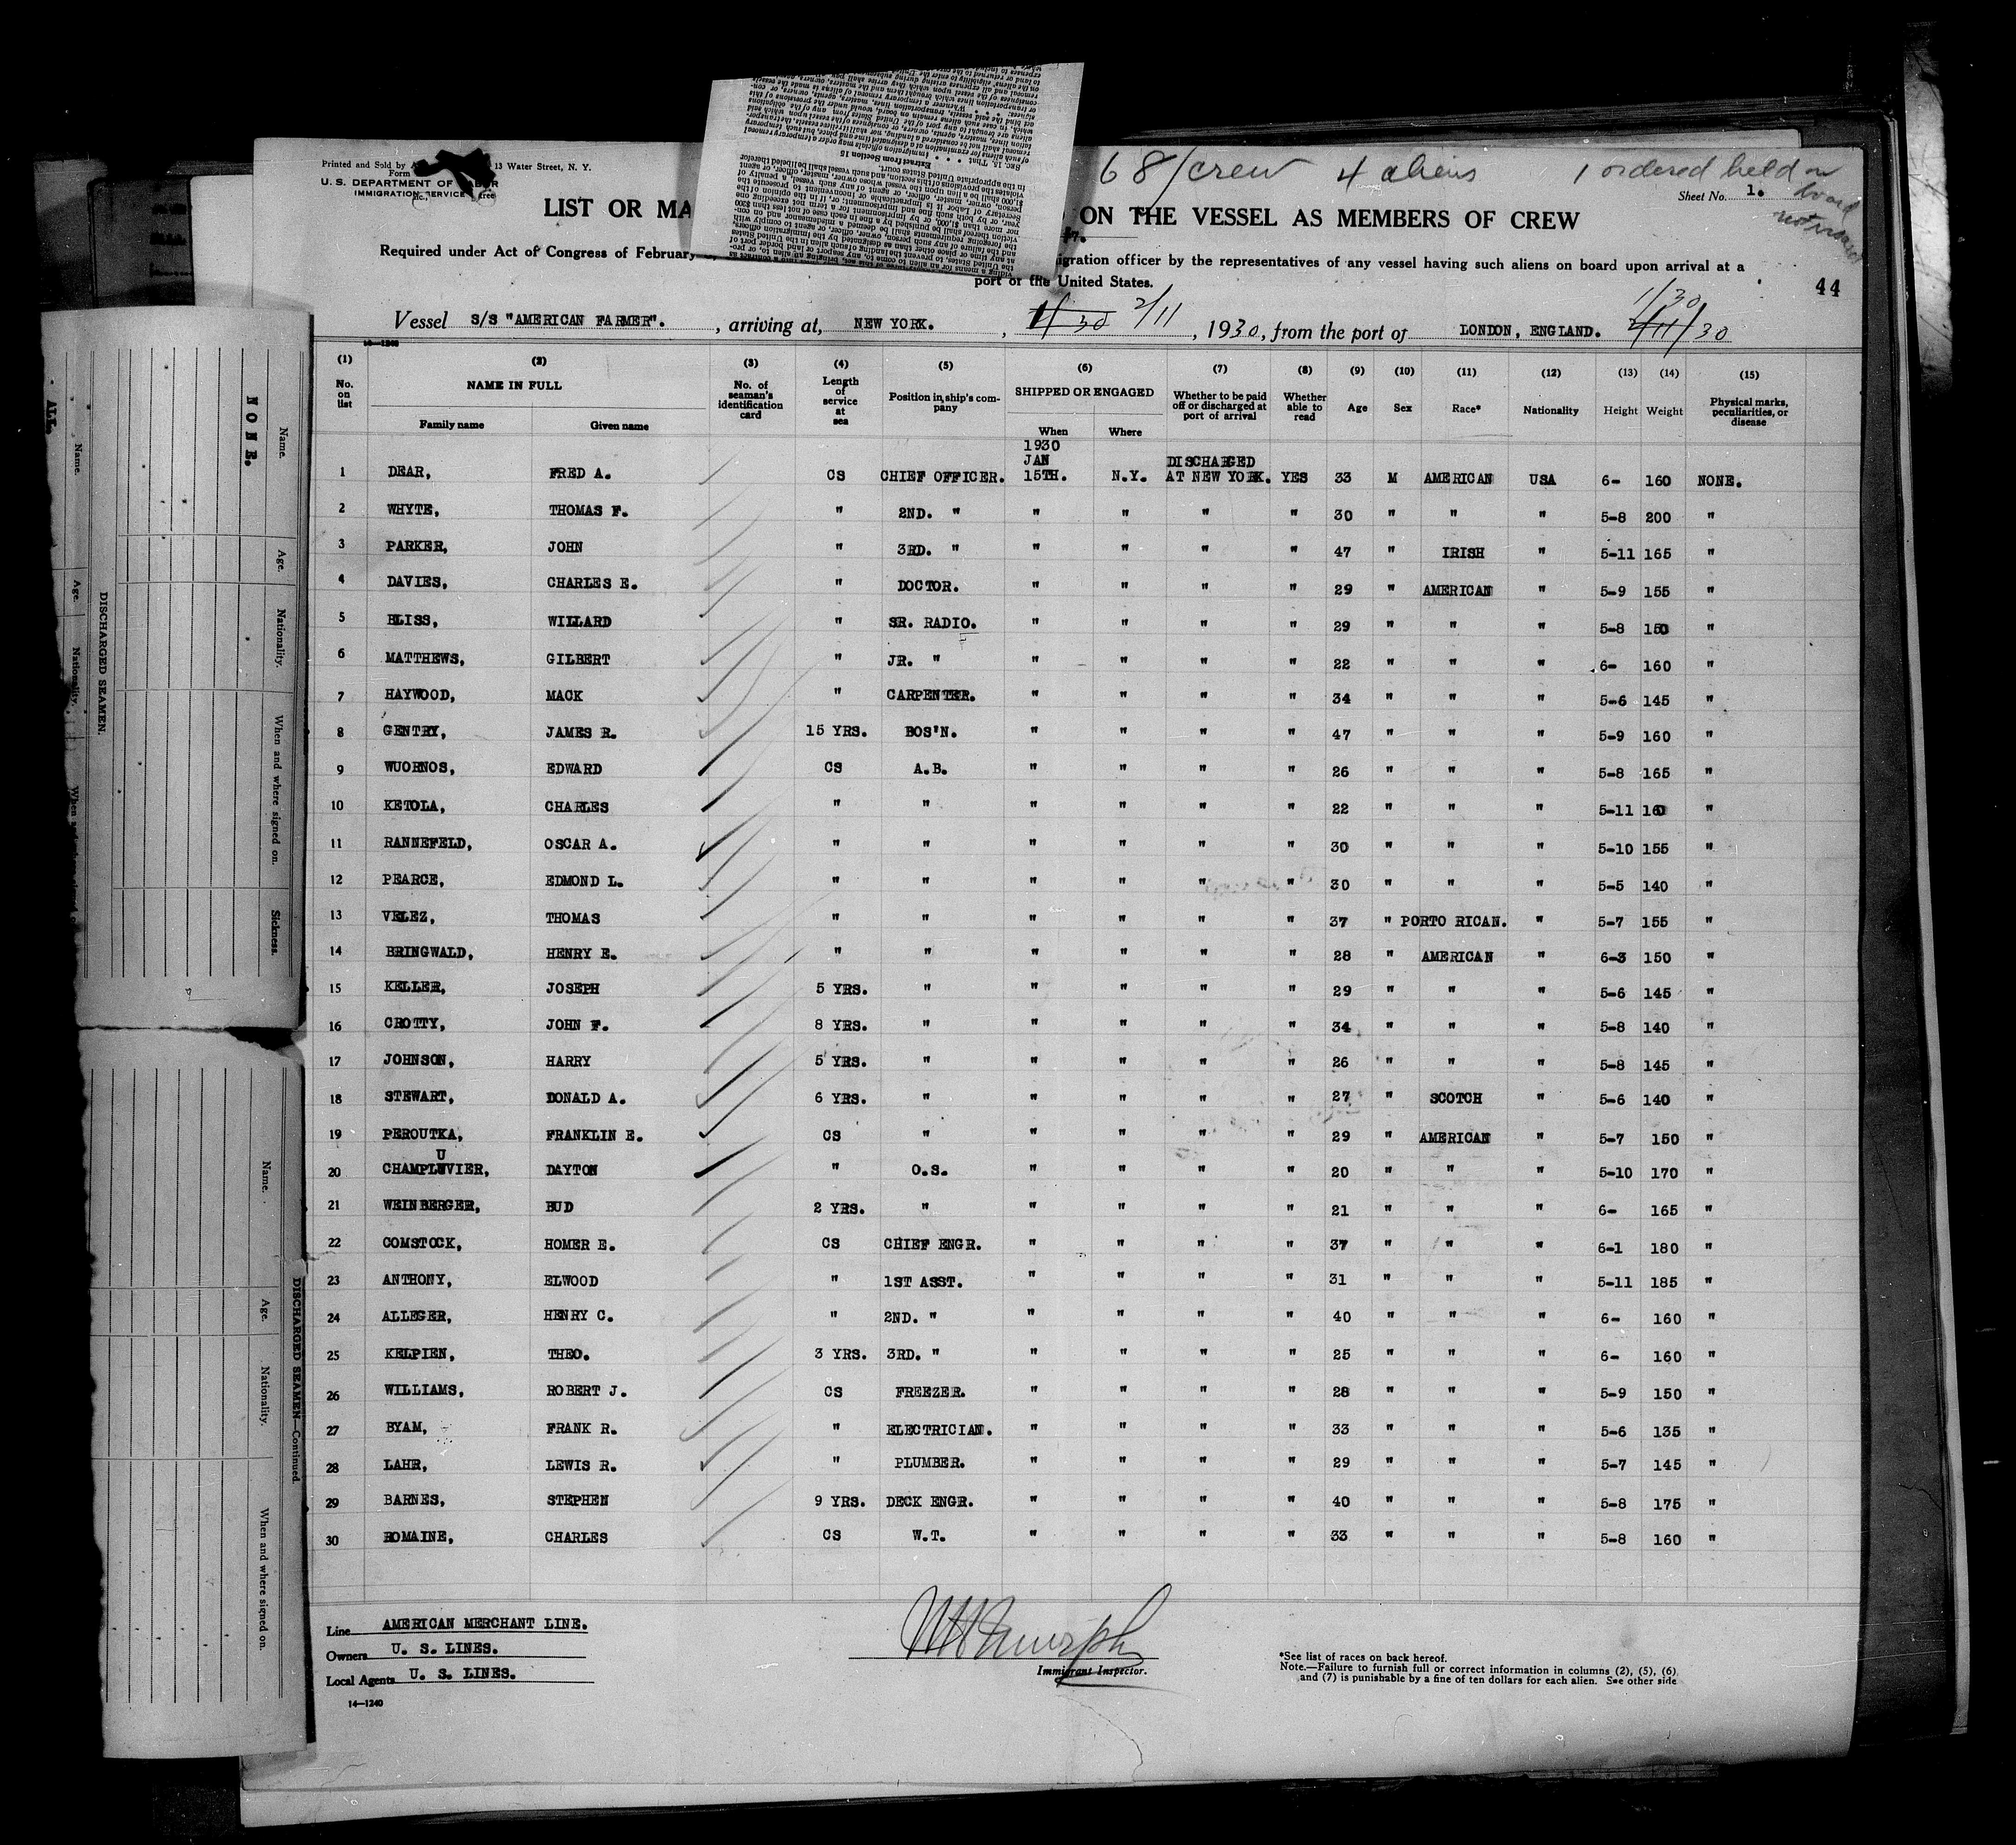 68/crew 4 aliens 1 ordered held on
board
Printed and Sold by 13 Water Street, N. Y.
Form
U.S. DEPARTMENT OF LABOR
IMMIGRATION SERVICE
Sheet No. 1.
LIST OR MA ON THE VESSEL AS MEMBERS OF CREW
Required under Act of Congress of February igration officer by the representatives of any vessel having such aliens on board upon arrival at a
port of the United States.
44
Vessel S/S "AMERICAN FARMER". , arriving at, NEW YORK. , 1/30 2/11 , 1930, from the port of LONDON, ENGLAND. 1/30 2/11/30
14—1240
(1) (2) (3) (4) (5) (6) (7) (8) (9) (10) (11) (12) (13) (14) (15)
No. on list NAME IN FULL No. of seaman's identification card Length of service at sea Position in ship's company SHIPPED OR ENGAGED Whether to be paid off or discharged at port of arrival Whether able to read Age Sex Race* Nationality Height Weight Physical marks, peculiarities, or disease
Family name Given name When Where
1930
JAN DISCHARGED
1 DEAR, FRED A. CS CHIEF OFFICER. 15TH. N.Y. AT NEW YORK. YES 33 M AMERICAN USA 6- 160 NONE.
2 WHYTE, THOMAS F. " 2ND. " " " " " 30 " " " 5-8 200 "
3 PARKER, JOHN " 3RD. " " " " " 47 " IRISH " 5-11 165 "
4 DAVIES, CHARLES E. " DOCTOR. " " " " 29 " AMERICAN " 5-9 155 "
5 BLISS, WILLARD " SR. RADIO. " " " " 29 " " " 5-8 150 "
6 MATTHEWS, GILBERT " JR. " " " " " 22 " " " 6- 160 "
7 HAYWOOD, MACK " CARPENTER. " " " " 34 " " " 5-6 145 "
8 GENTRY, JAMES R. 15 YRS. BOS'N. " " " " 47 " " " 5-9 160 "
9 WUORNOS, EDWARD CS A.B. " " " " 26 " " " 5-8 165 "
10 KETOLA, CHARLES " " " " " " 22 " " " 5-11 160 "
11 RANNEFELD, OSCAR A. " " " " " " 30 " " " 5-10 155 "
12 PEARCE, EDMOND L. " " " " " " 30 " " " 5-5 140 "
13 VELEZ, THOMAS " " " " " " 37 " PORTO RICAN. " 5-7 155 "
14 BRINGWALD, HENRY E. " " " " " " 28 " AMERICAN " 6-3 150 "
15 KELLER, JOSEPH 5 YRS. " " " " " 29 " " " 5-6 145 "
16 CROTTY, JOHN F. 8 YRS. " " " " " 34 " " " 5-8 140 "
17 JOHNSON, HARRY 5 YRS. " " " " " 26 " " " 5-8 145 "
18 STEWART, DONALD A. 6 YRS. " " " " " 27 " SCOTCH " 5-6 140 "
19 PEROUTKA, FRANKLIN E. CS " " " " " 29 " AMERICAN " 5-7 150 "
U
20 CHAMPLUVIER, DAYTON " O.S. " " " " 20 " " " 5-10 170 "
21 WEINBERGER, BUD 2 YRS. " " " " " 21 " " " 6- 165 "
22 COMSTOCK, HOMER E. CS CHIEF ENGR. " " " " 37 " " " 6-1 180 "
23 ANTHONY, ELWOOD " 1ST ASST. " " " " 31 " " " 5-11 185 "
24 ALLEGER, HENRY C. " 2ND. " " " " " 40 " " " 6- 160 "
25 KELPIEN, THEO. 3 YRS. 3RD. " " " " " 25 " " " 6- 160 "
26 WILLIAMS, ROBERT J. CS FREEZER. " " " " 28 " " " 5-9 150 "
27 BYAM, FRANK R. " ELECTRICIAN. " " " " 33 " " " 5-6 135 "
28 LAHR, LEWIS R. " PLUMBER. " " " " 29 " " " 5-7 145 "
29 BARNES, STEPHEN 9 YRS. DECK ENGR. " " " " 40 " " " 5-8 175 "
30 ROMAINE, CHARLES CS W.T. " " " " 33 " " " 5-8 160 "
Line AMERICAN MERCHANT LINE.
Owners U. S. LINES.
Local Agents U. S. LINES.
14—1240
Immigrant Inspector.
*See list of races on back hereof.
Note.—Failure to furnish full or correct information in columns (2), (5), (6)
and (7) is punishable by a fine of ten dollars for each alien. See other side
NONE.
Name. Age. Nationality. When and where signed on. Sickness.
DISCHARGED SEAMEN.
Name. Age. Nationality.
Name. Age. Nationality. When and where signed on.
DISCHARGED SEAMEN—Continued.
Extract from Section 15